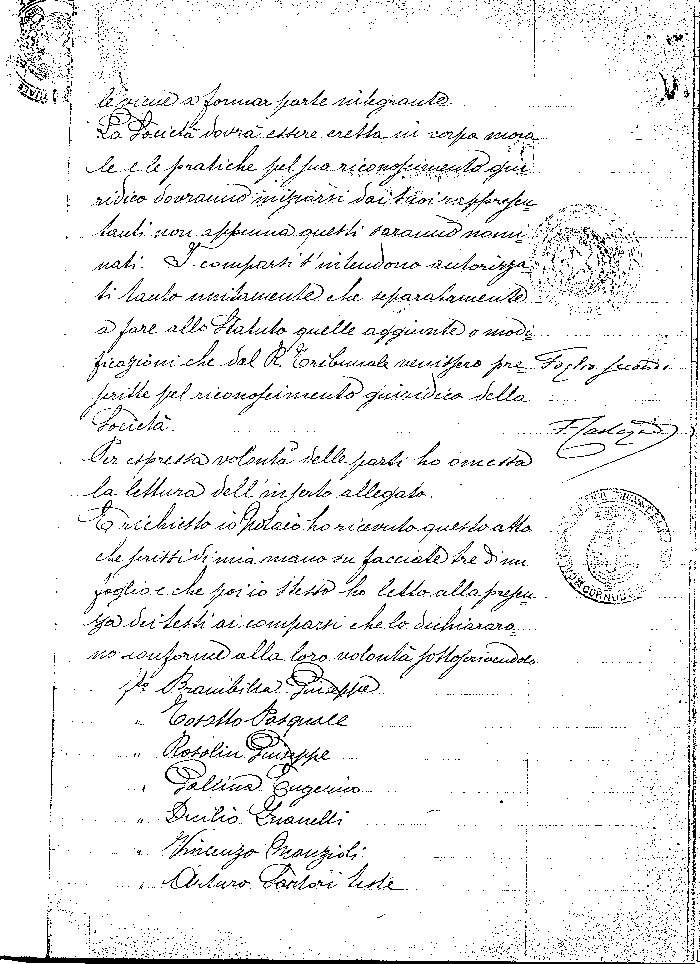 le viene a formar parte integrante.
La Società dovrà essere eretta in corpo mora
le e le pratiche pel suo riconoscimento giu
ridico dovranno iniziarsi dai suoi rappresen
tanti non appena questi saranno nomi-
nati. I comparsi s'intendono autorizza
ti tanto unitamente che separatamente
a fare allo Statuto quelle aggiunte o modi-
ficazioni che dal R. Tribunale venissero pre
Foglio secondo
scritte pel riconoscimento giuridico della
Società.
Per espressa volontà delle parti ho omessa
la lettura dell'inserto allegato.
E richiesto io Notaio ho ricevuto questo atto
che scrissi di mia mano su facciate tre di un
foglio e che poi io stesso ho letto alla presen
za dei testi ai comparsi che lo dichiarara-
no conforme alla loro volontà sottoscrivendolo
fto Brambilla Giuseppe
" Tosetto Pasquale
" Rosolin Giuseppe
" Gallina Eugenio
" Duilio Granelli
" Vincenzo Manzioli
" Arturo Sartori teste